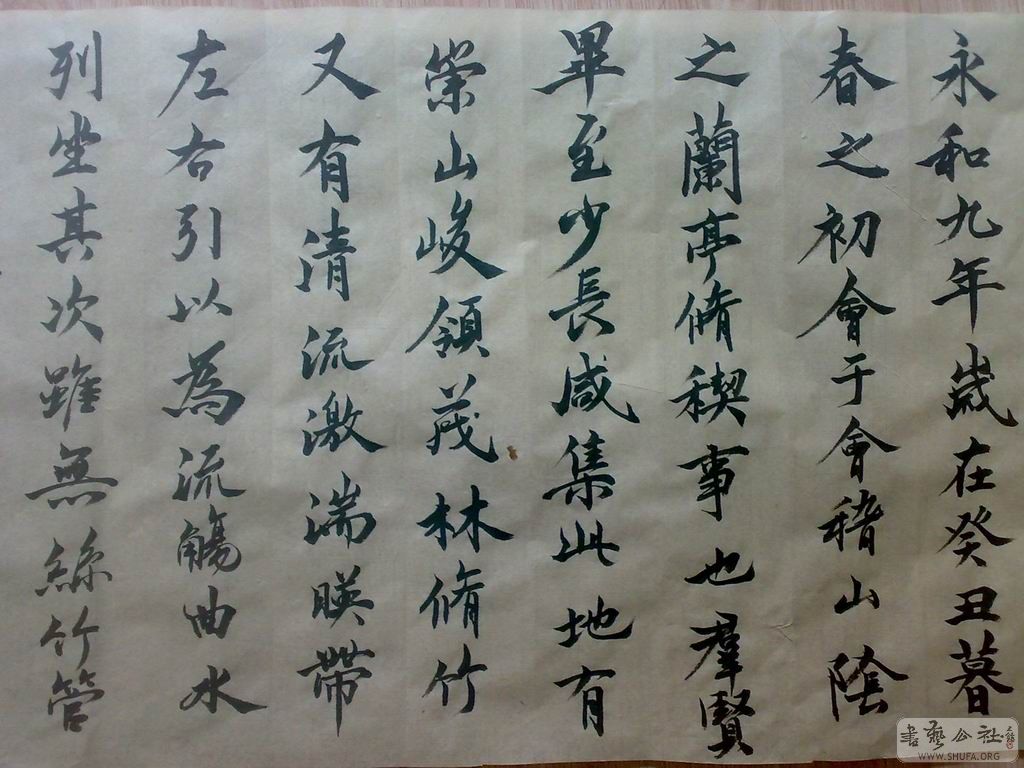 永和九年歲在癸丑暮
春之初會于會稽山陰
之蘭亭脩稧事也群賢
畢至少長咸集此地有
崇山峻領茂林脩竹
又有清流激湍暎帶
左右引以為流觴曲水
列坐其次雖無絲竹管
書藝公社
WWW.SHUFA.ORG